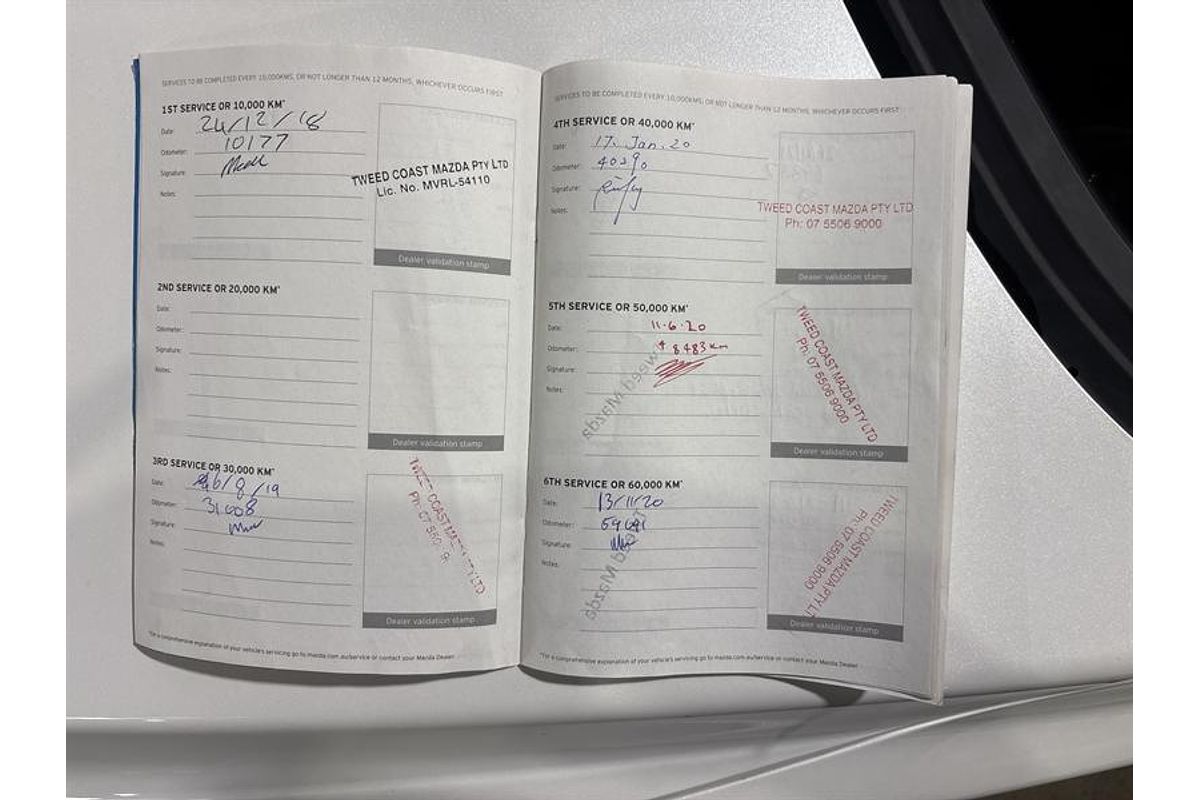 SERVICES TO BE COMPLETED EVERY 10,000KMS, OR NOT LONGER THAN 12 MONTHS, WHICHEVER OCCURS FIRST
1ST SERVICE OR 10,000 KM*
Date: 24/12/18
Odometer: 10177
Signature:
Notes:
TWEED COAST MAZDA PTY LTD
Lic. No. MVRL-54110
Dealer validation stamp
2ND SERVICE OR 20,000 KM*
Date:
Odometer:
Signature:
Notes:
Dealer validation stamp
3RD SERVICE OR 30,000 KM*
Date: 6/8/19
Odometer: 31608
Signature:
Notes:
TWEED COAST MAZDA PTY LTD
Ph: 07 550
Dealer validation stamp
*For a comprehensive explanation of your vehicle's servicing go to mazda.com.au/service or contact your Mazda Dealer.
SERVICES TO BE COMPLETED EVERY 10,000KMS, OR NOT LONGER THAN 12 MONTHS, WHICHEVER OCCURS FIRST
4TH SERVICE OR 40,000 KM*
Date: 17. Jan. 20
Odometer: 40290
Signature:
Notes:
TWEED COAST MAZDA PTY LTD
Ph: 07 5506 9000
Dealer validation stamp
5TH SERVICE OR 50,000 KM*
Date: 11.6.20
Odometer: 48483 km
Signature:
Notes:
Tweed Mazda
TWEED COAST MAZDA PTY LTD
Ph: 07 5506 9000
Dealer validation stamp
6TH SERVICE OR 60,000 KM*
Date: 13/11/20
Odometer: 59691
Signature:
Notes:
Tweed Mazda
TWEED COAST MAZDA PTY LT
Ph: 07 5506 9000
Dealer validation stamp
*For a comprehensive explanation of your vehicle's servicing go to mazda.com.au/service or contact your Mazda Dealer.